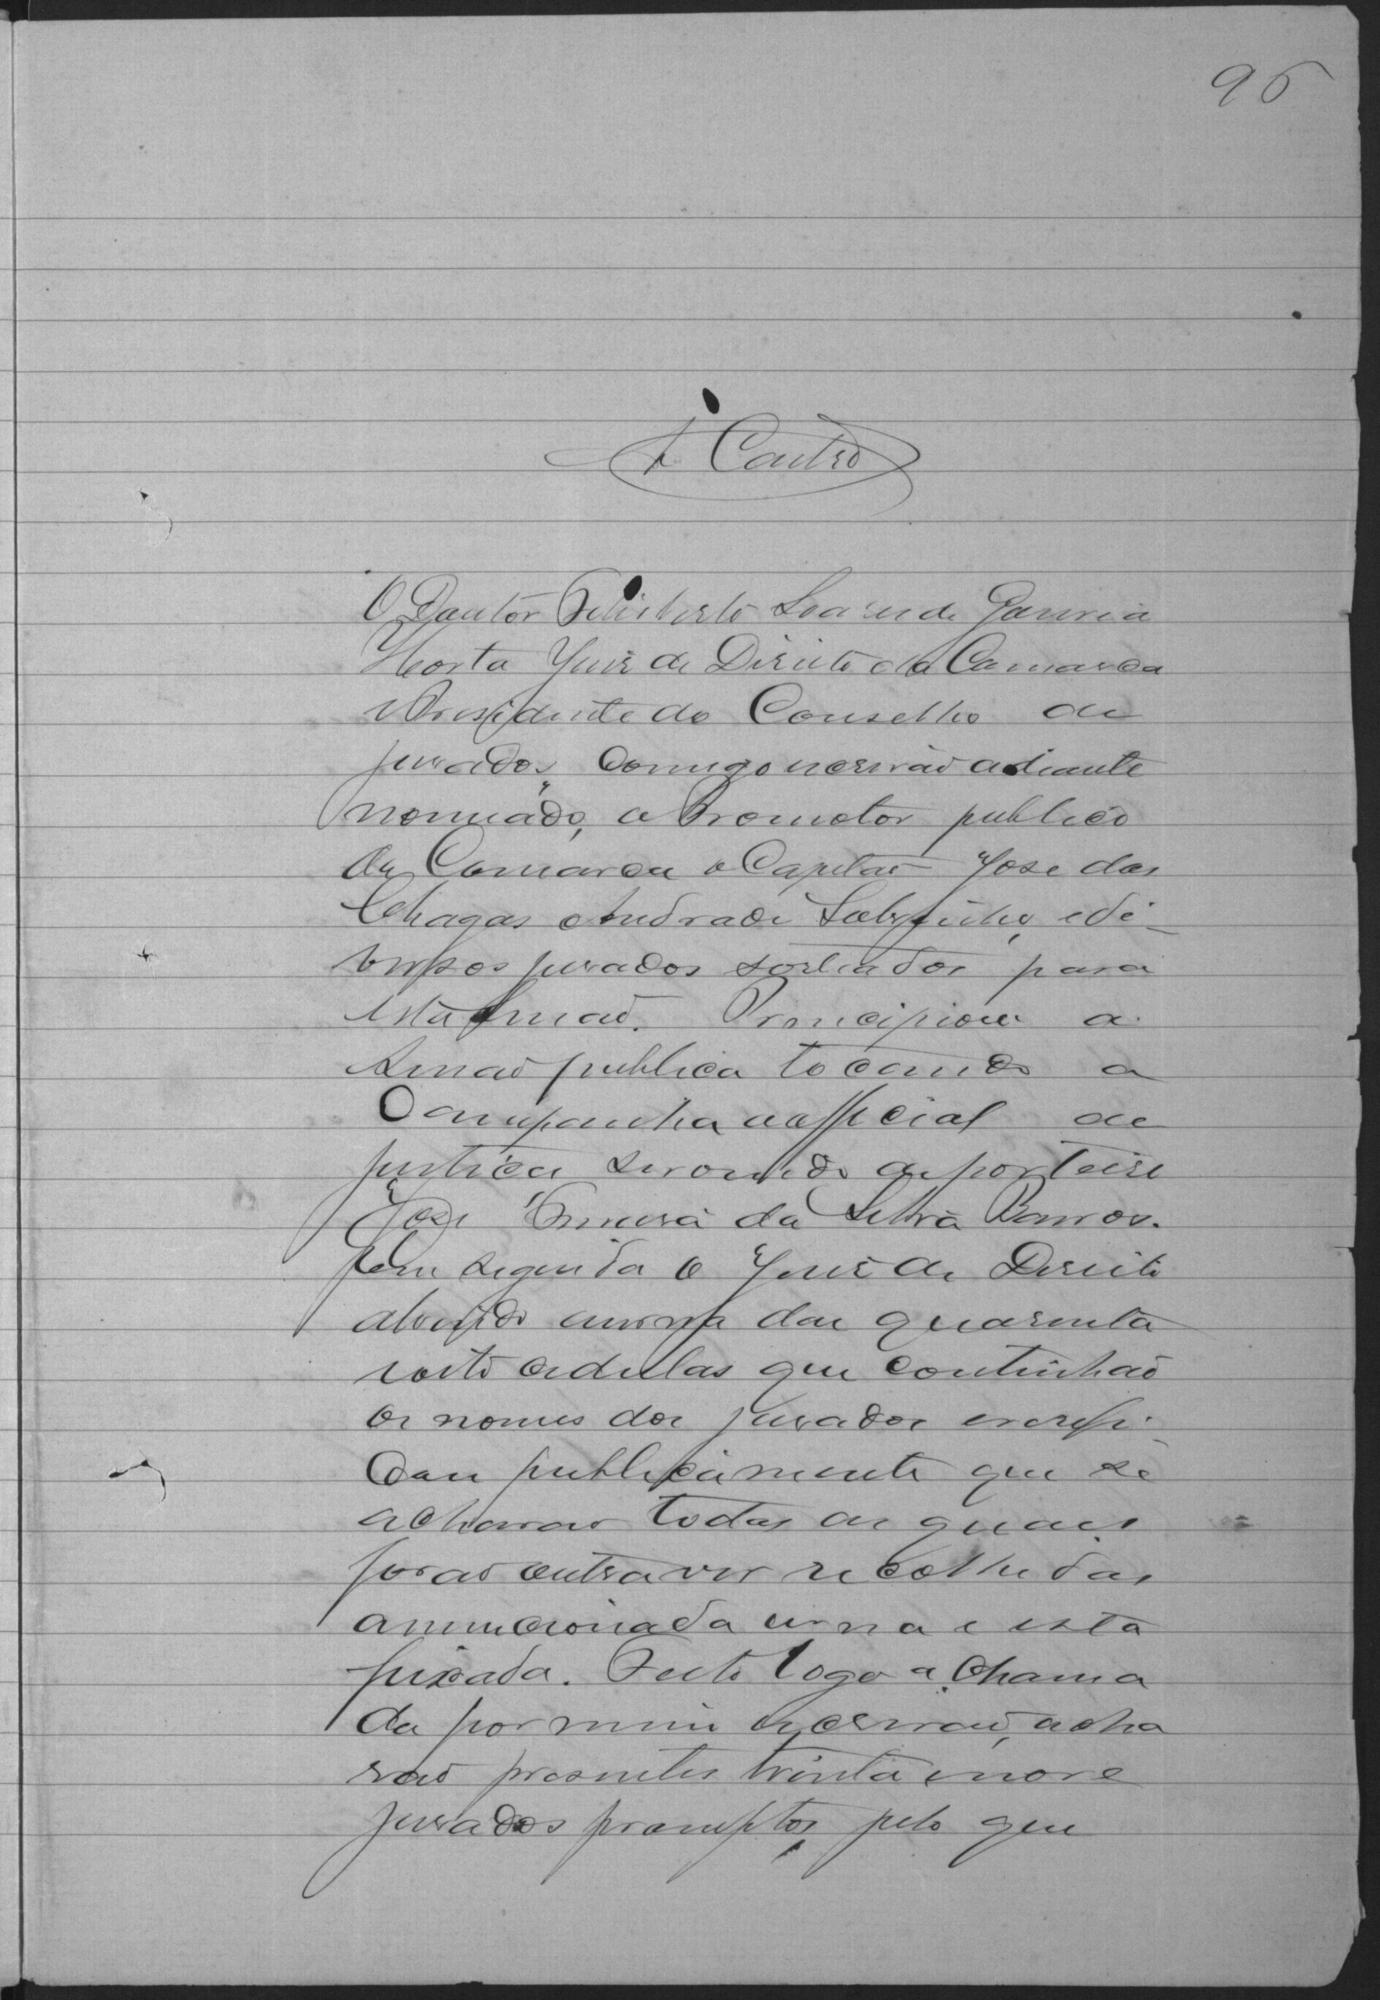 96
Castro
O Doutor Feliberto Soares de Gouveia
Horta Juiz de Direito da Comarca
Presidente do Conselho de
jurados comigo escrivão adiante
nomeado, o Promotor publico
da Comarca o Capitão Jose das
Chagas Andrade Sobrinho, e di-
versos jurados sorteados para
esta sessão. Principiou a
sessão publica tocando a
Campanha o official de
justiça servindo de porteiro
José da Silva Barros.
Em seguida o Juiz de Direito
abrindo a urna das quarenta
e oito cedulas que continhão
os nomes dos jurados verifi-
cou publicamente que se
acharão todas as quaes
forão outra vez recolhidas
a mencionada urna e esta
fixada. Feito logo a chama
da por mim escrivão, acha
rão presentes trinta e nove
jurados promptos, pelo que